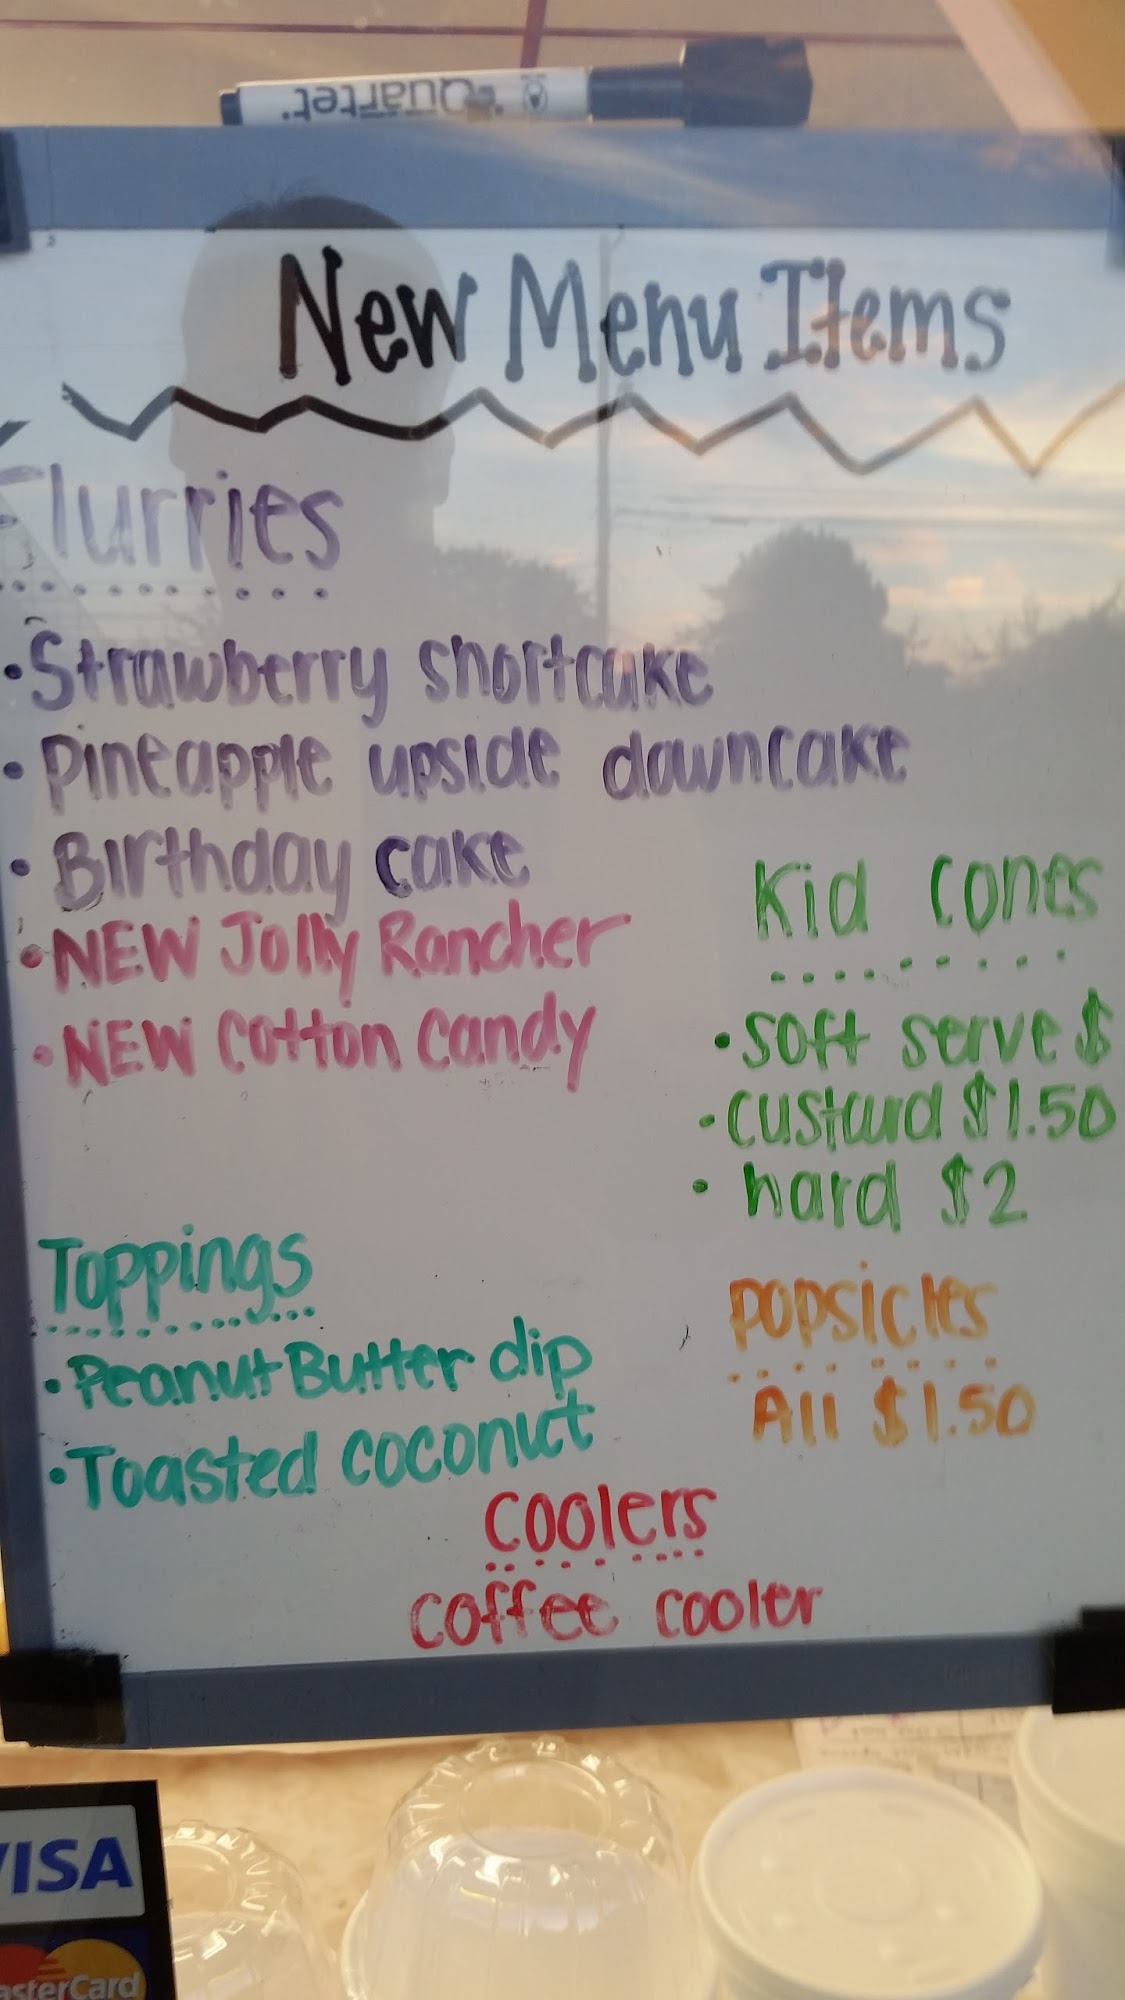 Quartet
New Menu Items
Flurries
• Strawberry shortcake
• Pineapple upside downcake
• Birthday cake
• NEW Jolly Rancher
• NEW Cotton Candy
Kid cones
• soft serve $
• custard $1.50
• hard $2
Toppings
• Peanut Butter dip
• Toasted coconut
Popsicles
All $1.50
Coolers
coffee cooler
VISA
MasterCard